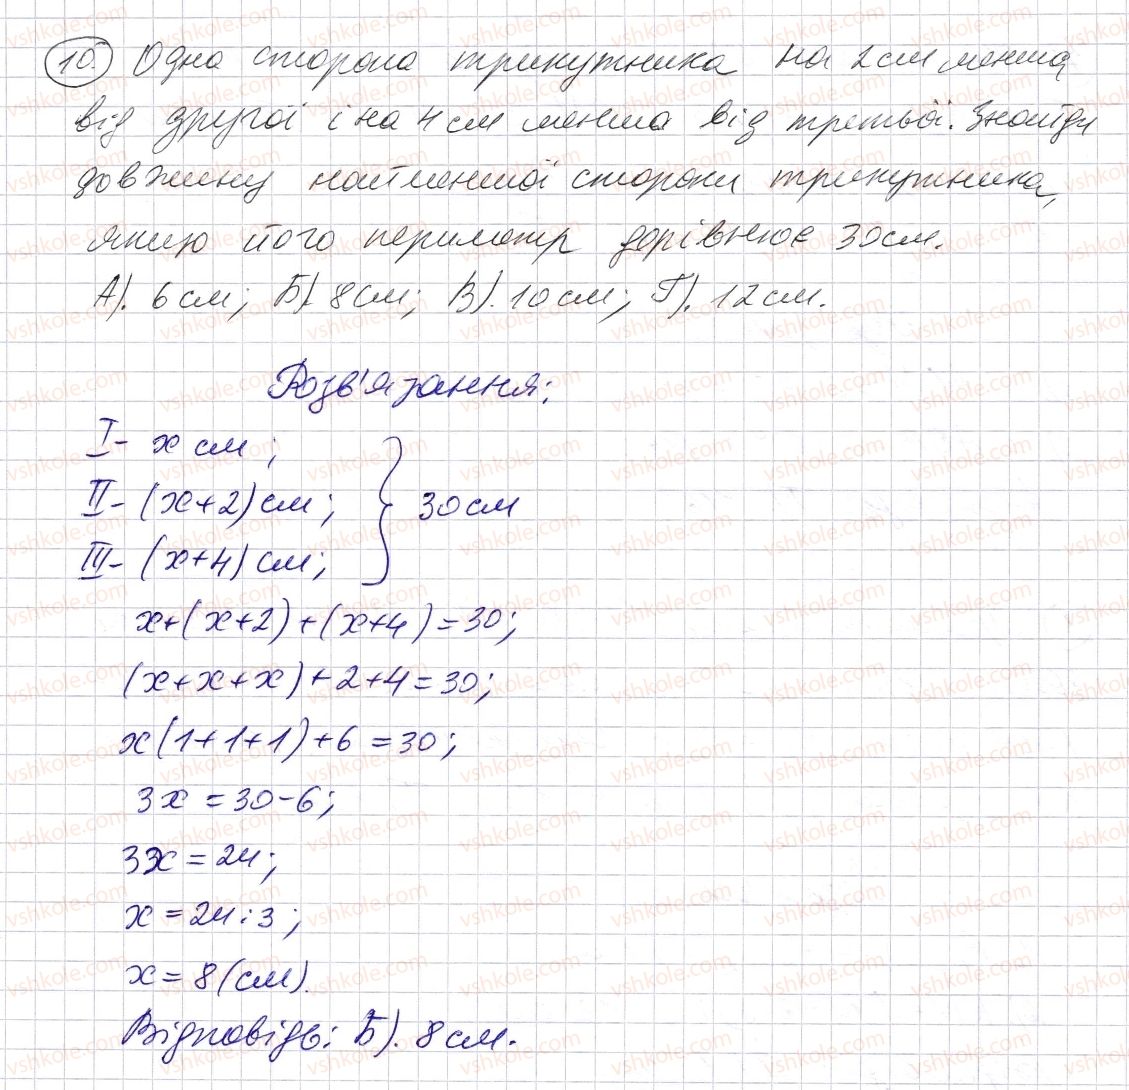 10. Одна сторона трикутника на 2 см менша
від другої і на 4 см менша від третьої. Знайди
довжину найменшої сторони трикутника,
якщо його периметр дорівнює 30 см.
А). 6 см; Б). 8 см; В). 10 см; Г). 12 см.
Розв'язання:
I - x см;
II - (x+2) см; } 30 см
III - (x+4) см;
x+(x+2)+(x+4)=30;
(x+x+x)+2+4=30;
x(1+1+1)+6=30;
3x=30-6;
3x=24;
x=24:3;
x=8(см).
Відповідь: Б). 8 см.